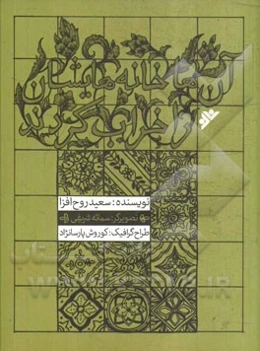 آن‌ها خانه‌هایشان
را خراب
نویسنده: سعید روح‌افزا
تصویرگر: سمانه شریفی
طراح گرافیک: کوروش پارسانژاد